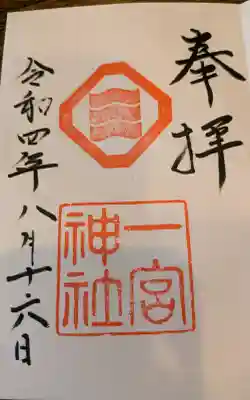 奉拝
一宮
神社
令和四年八月十六日